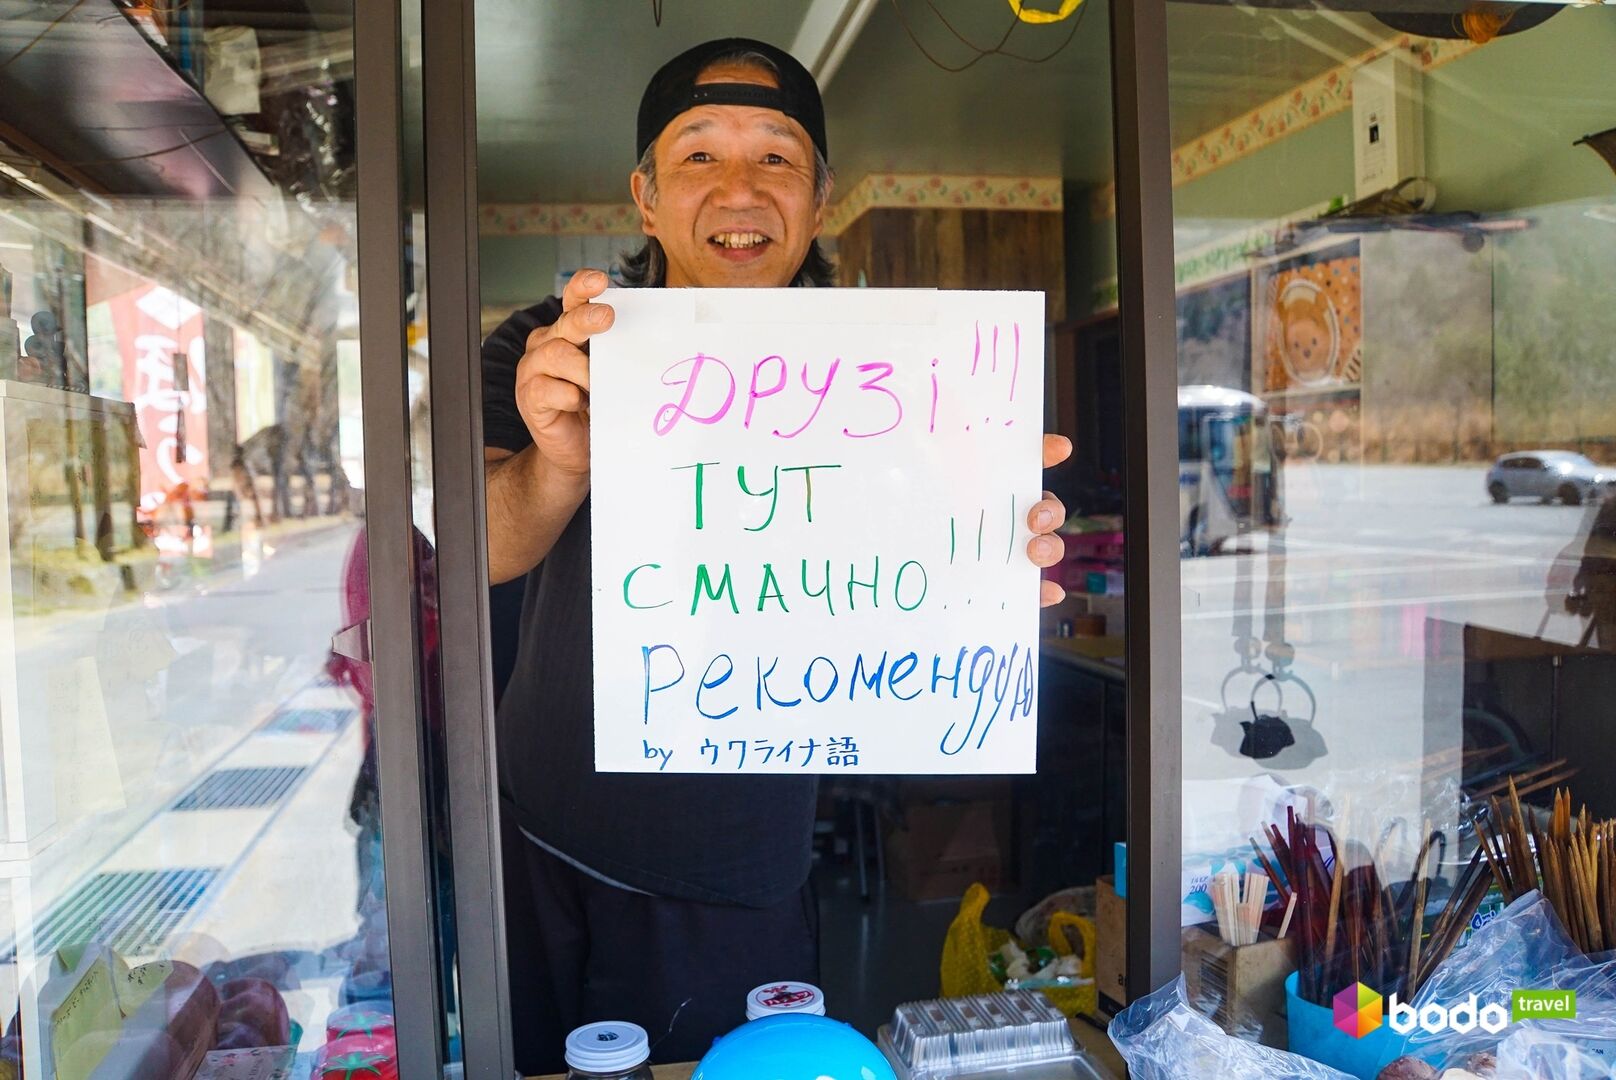 ДРУЗІ!!!
ТУТ
СМАЧНО!!!
РЕКОМЕНДУЮ
by ウクライナ語
bodo travel